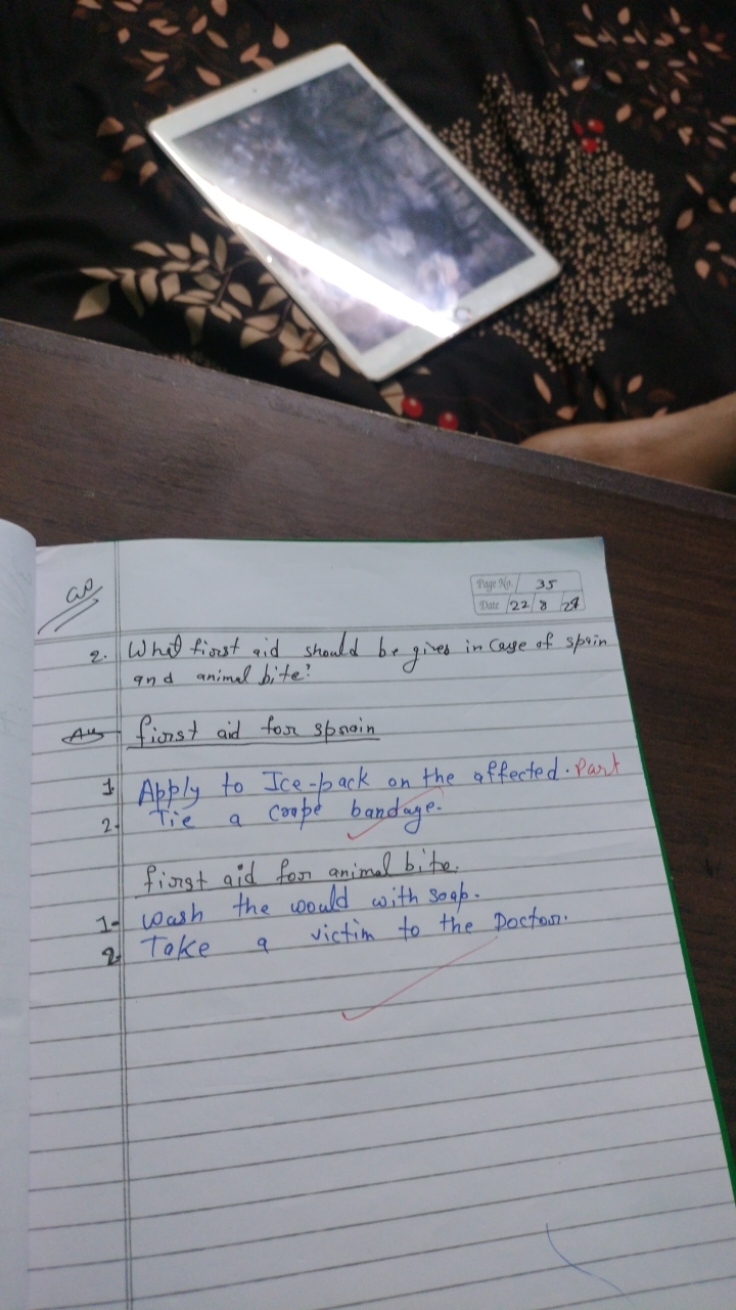 Page No. 35
Date 22 8 24
2. What first aid should be gives in case of sprin
and animal bite?
Ans first aid for sprain
1. Apply to Ice-pack on the affected. Part
2. Tie a crape bandage.
first aid for animal bite.
1- wash the would with soap.
2. Take a victim to the Doctor.